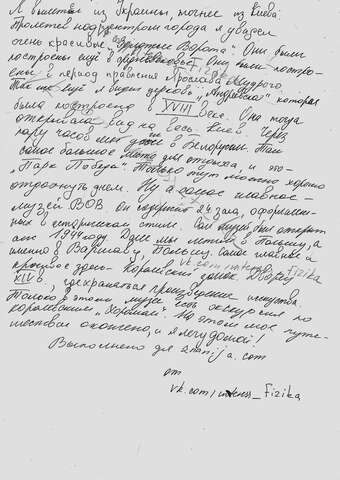 Я вылетел из Украины, точнее из Киева.
Пролетев над центром города я увидел
очень красивые "Золотые Ворота". Они были
построены ещё в средневековье. Они были постро-
ены в период правления Ярослава Мудрого.
Так же ещё я видел церковь "Андреевская" которая
была построена в XVIII веке. Она тогда
открывала вид на весь Киев. Через
пару часов мы уже в Белоруссии. Там
самое большое место для отдыха, и это-
"Парк Победы". Только тут можно хорошо
отдохнуть днем. Ну а самое главное-
музей ВОВ. Он содержит 24 зала, оформлен-
ных в историческом стиле. Сам музей был открыт
аж 1944 году. Далее мы летим в Польшу, а
именно в Варшаву, Польшу. Самое главное и
красивое здесь- Королевский замок. Дворец
vk.com/intenss_fizika
XIV в, где хранятся произведение искусства.
Только в этом музее есть экскурсия по
королевским "хоромам". На этом мое путе-
шествие окончено, и я лечу домой!
Выполнено для
от
vk.com/intenss_fizika